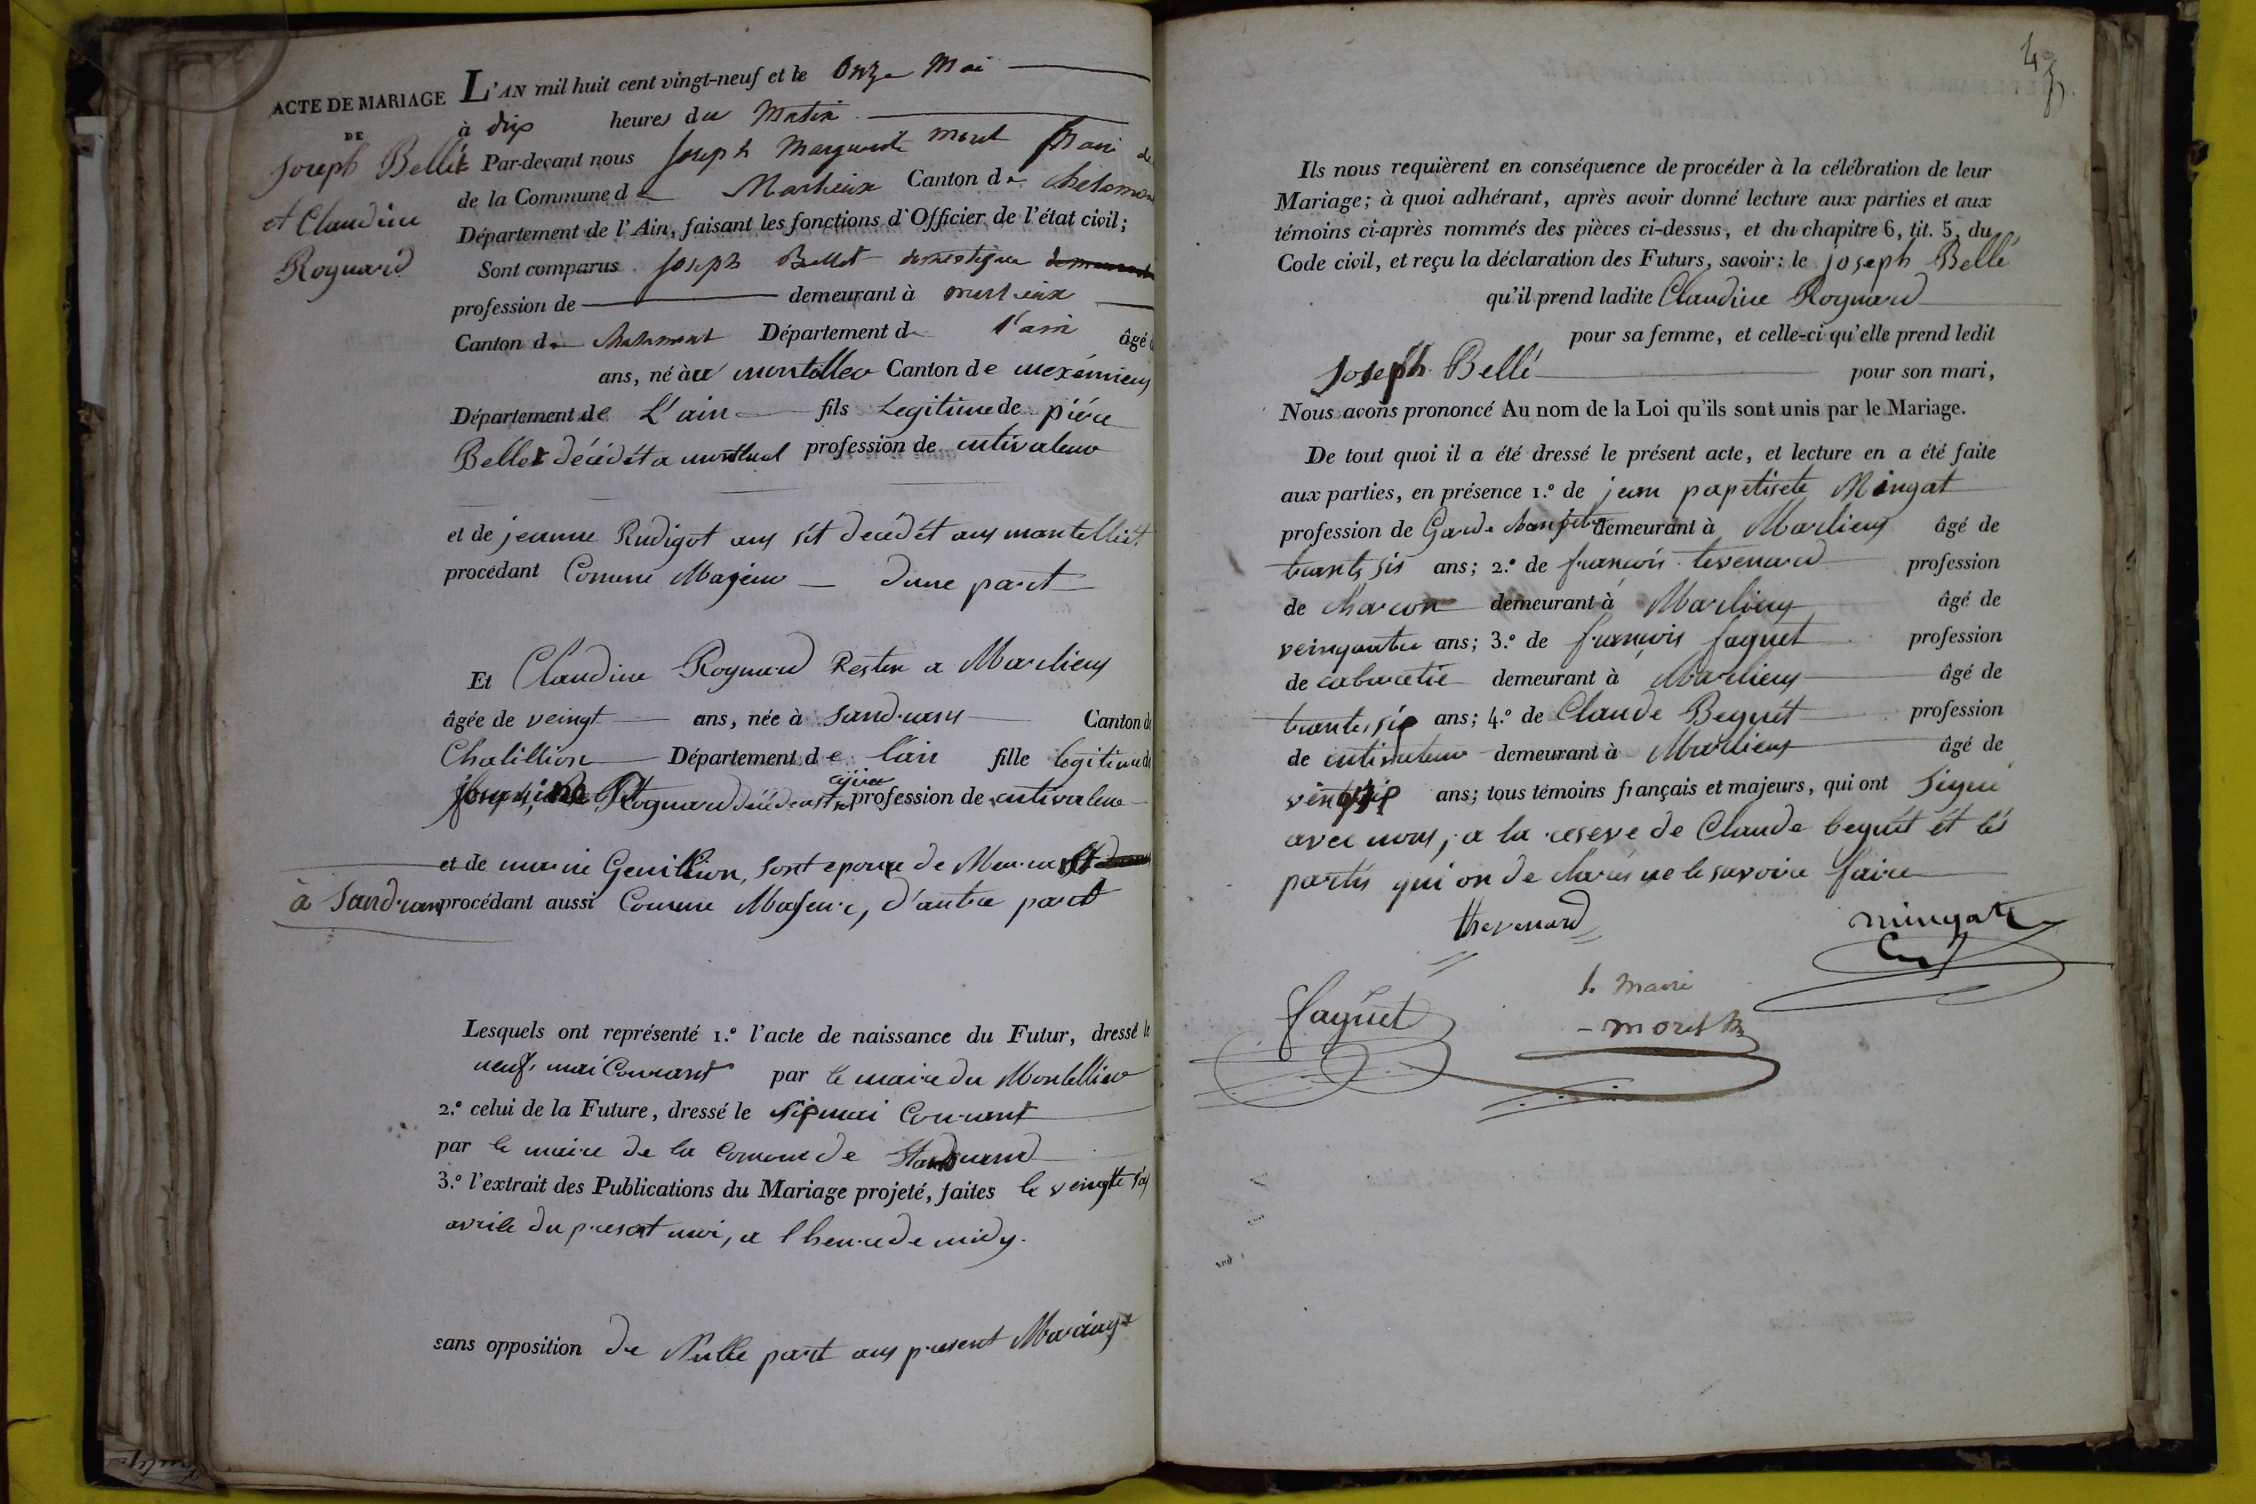 ACTE DE MARIAGE
DE
Joseph Bellet
et Claudine
Roynard
L'AN mil huit cent vingt-neuf et le Onze Mai
à dix heures du Matin
Par-devant nous Joseph Marguerite Moret Maire
de la Commune de Marlieux Canton de chalamont
Département de l'Ain, faisant les fonctions d'Officier de l'état civil;
Sont comparus Joseph Bellet domestique
profession de demeurant à marlieux
Canton de chalamont Département de l'ain âgé
ans, né àu montellier Canton de mexémieux
Département de L'ain fils Legitime de piére
Bellet décédét a montluel profession de cutivateur
et de jeanne Rudigot aux sit decédét aux montelliét
procédant Comme Majeur dune part
Et Claudine Roynard Resten a Marlieux
âgée de veingt ans, née à Sandrans Canton de
Chatillion Département de l'ain fille legitime de
Roynard profession de cutivateur
et de marie Genillion, sont epouxe de
à Sandrans procédant aussi Comme Majeure, d'autre part
Lesquels ont représenté 1.º l'acte de naissance du Futur, dressé le
neuf mai Courant par le maire du Montellier
2.º celui de la Future, dressé le six mai Courant
par le maire de la Comune de Sandrand
3.º l'extrait des Publications du Mariage projeté, faites le veingtt six
avrile du present moi, a lheure de midy.
sans opposition de Nulle part aux present Mariage
43
Ils nous requièrent en conséquence de procéder à la célébration de leur
Mariage; à quoi adhérant, après avoir donné lecture aux parties et aux
témoins ci-après nommés des pièces ci-dessus, et du chapitre 6, tit. 5, du
Code civil, et reçu la déclaration des Futurs, savoir: le joseph Bellé
qu'il prend ladite Claudine Roynard
pour sa femme, et celle-ci qu'elle prend ledit
Joseph Bellé pour son mari,
Nous avons prononcé Au nom de la Loi qu'ils sont unis par le Mariage.
De tout quoi il a été dressé le présent acte, et lecture en a été faite
aux parties, en présence 1.º de jean papetisete Mingat
profession de Garde Champetre demeurant à Marlieux âgé de
trante sis ans; 2.º de françois tevenard profession
de charon demeurant à Marlieux âgé de
veinquatre ans; 3.º de françois faguet profession
de cabaretie demeurant à Marlieux âgé de
trante six ans; 4.º de Claude Beguét profession
de cutivateur demeurant à Marlieux âgé de
vingsix ans; tous témoins français et majeurs, qui ont Signé
avec nous, a la reserve de Claude beguét ét lés
partis qui on de clarés ne le savoire faire
thevenard
mingat
faguet
le Maire
moret